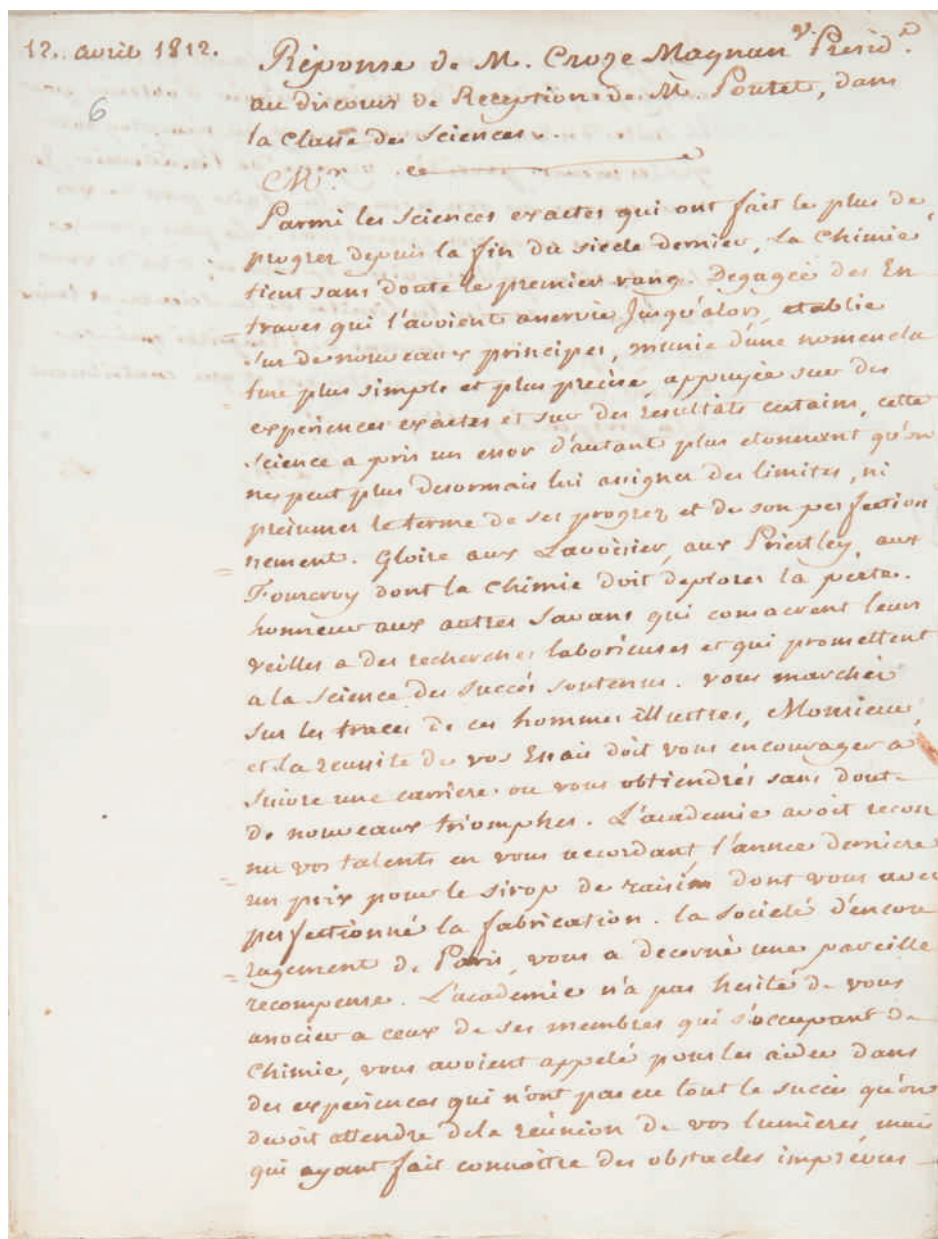 12. avril 1812.
6
Réponse de M. Croze Magnan V. Presid.
au discours de Reception de M. Poutet, dans
la Classe des Sciences.
M.
Parmi les Sciences exactes qui ont fait le plus de
progrez depuis la fin du siecle dernier, la Chimie
tient sans doute le premier rang. Degagée des En
=traves qui l'avoient enervée Jusqu'alors, etablie
sur de nouveaux principes, munie d'une nomencla
=ture plus simple et plus precise, appuyée sur des
experiences exactes et sur des resultats certains, cette
Science a pris un essor d'autant plus etonnant qu'on
ne peut plus desormais lui assigner des limites, ni
presumer le terme de ses progrez et de son perfection
=nement. Gloire aux Lavoisier, aux Priestley, aux
Fourcroy dont la Chimie doit deplorer la perte.
honneur aux autres Savans qui consacrent leurs
veilles a des recherches laborieuses et qui promettent
a la Science des succés soutenus. vous marchés
sur les traces de ces hommes illustres, Monsieur,
et la reussite de vos Essais doit vous encourager a
suivre une carriere ou vous obtiendrés sans doute
de nouveaux triomphes. L'academie avoit recon
=nu vos talents en vous accordant, l'année derniere
un prix pour le sirop de raisin dont vous avez
perfectionné la fabrication. la Societé d'encou
=ragement de Paris, vous a decerné une pareille
recompense. L'academie n'a pas hesité de vous
associer a ceux de ses membres qui s'occupant de
Chimie, vous avoient appelé pour les aider dans
des experiences qui n'ont pas eu tout le succès qu'on
devoit attendre de la réunion de vos lumieres, mais
qui ayant fait connoitre des obstacles imprévus